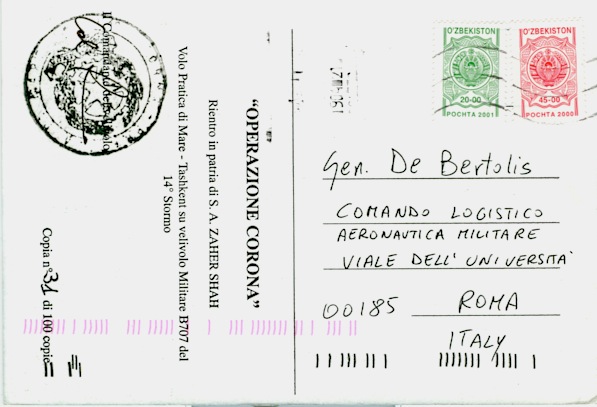 "OPERAZIONE CORONA"
Rientro in patria di S. A. ZAHER SHAH
Volo Pratica di Mare - Tashkent su velivolo Militare B707 del
14° Stormo
Il Comandante del
Copia n° 31 di 100 copie
O'ZBEKISTON
20-00
POCHTA 2001
O'ZBEKISTON
45-00
POCHTA 2000
Gen. De Bertolis
COMANDO LOGISTICO
AERONAUTICA MILITARE
VIALE DELL'UNIVERSITÀ
00185 ROMA
ITALY